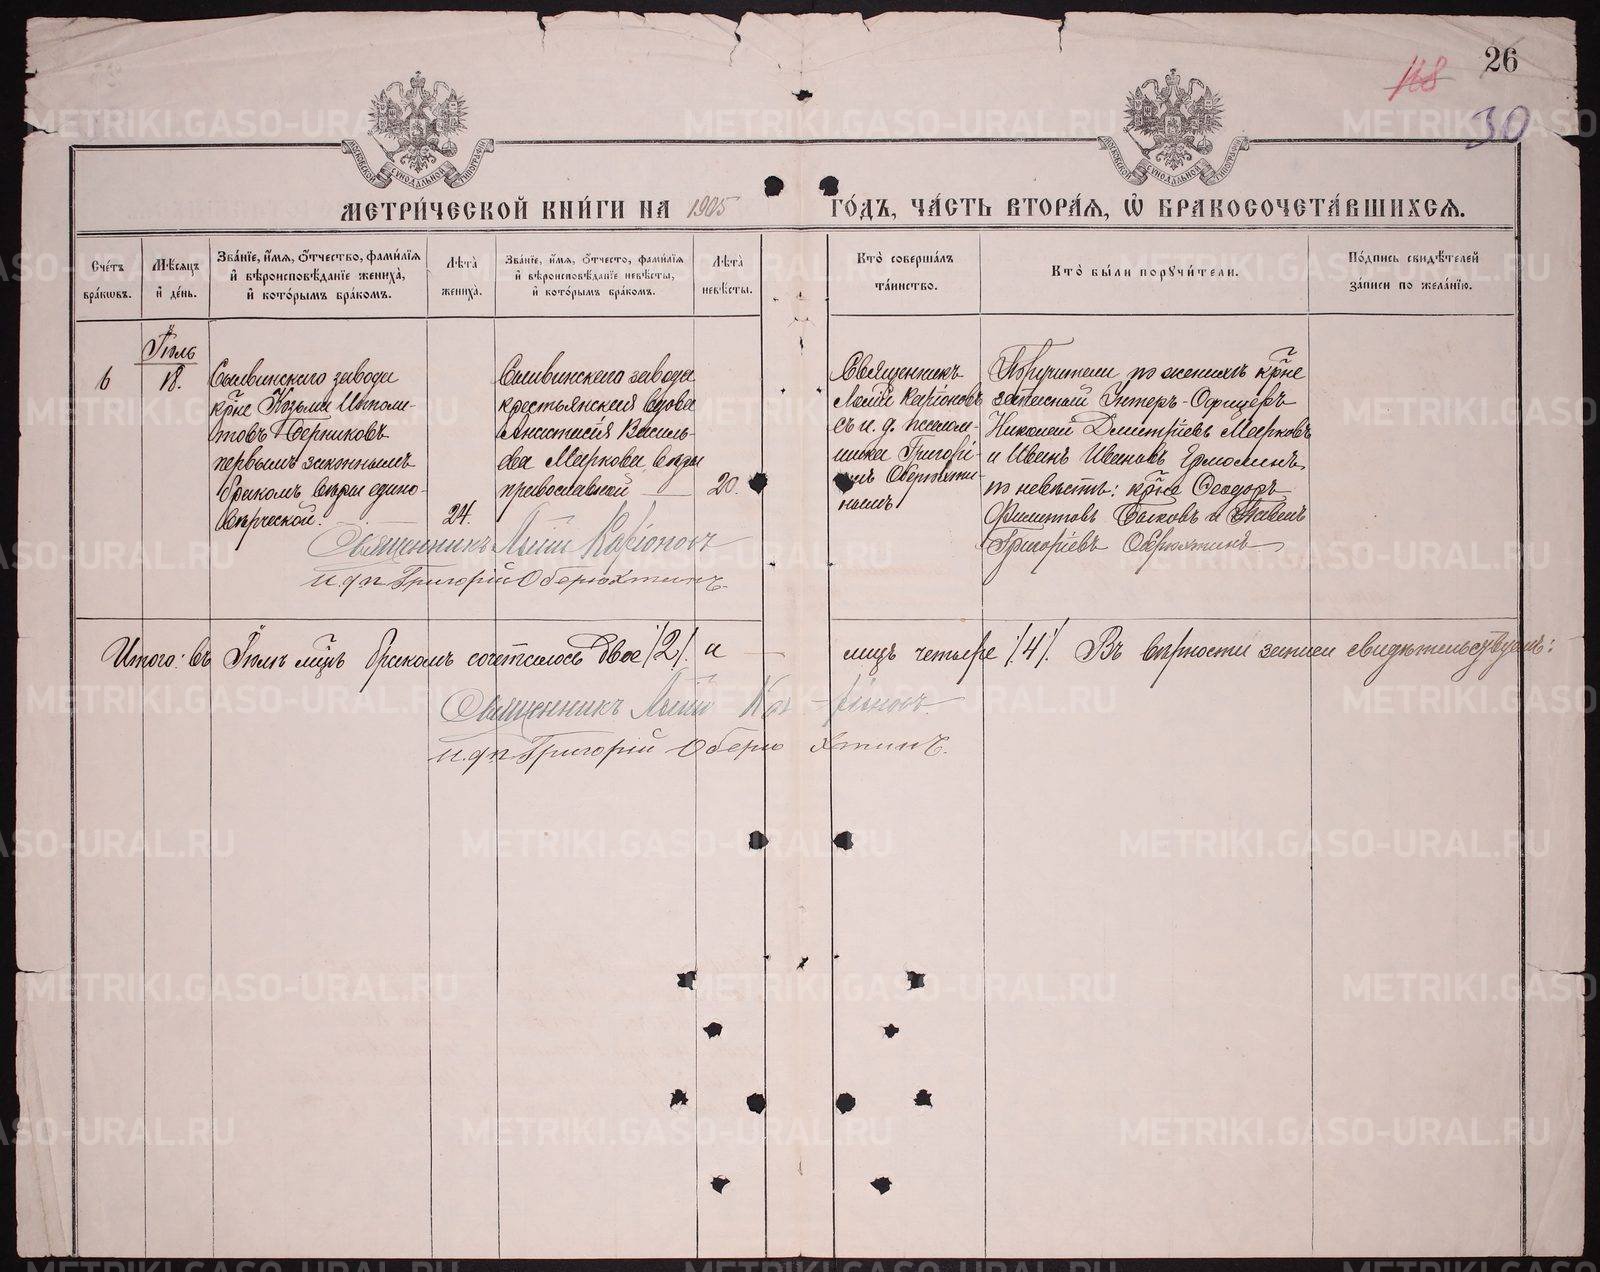 26
118
30
МОСКОВСКОЙ СѴНОДАЛЬНОЙ ТИПОГРАФІИ
МОСКОВСКОЙ СѴНОДАЛЬНОЙ ТИПОГРАФІИ
МЕТРИ́ЧЕСКОЙ КНИ́ГИ НА 1905 ГО́ДЪ, ЧА́СТЬ ВТОРА́Я, Ѡ҆ БРАКОСОЧЕТА́ВШИХСЯ.
Сче́тъ бра́кѡвъ.
Мѣ́сяцъ и҆ де́нь.
Зва́нїе, и҆́мя, ѻ҆́тчество, фами́лїя и҆ вѣроисповѣ́данїе жениха̀, и҆ кото́рымъ бра́комъ.
Лѣ́та жениха̀.
Зва́нїе, и҆́мя, ѻ҆́тчесто, фами́лїя и҆ вѣроисповѣ́данїе невѣ́сты, и҆ кото́рымъ бра́комъ.
Лѣ́та невѣ́сты.
Кто̀ соверша́лъ та́инство.
Кто̀ бы́ли порꙋчи́тели.
По́дпись свидѣ́телей за́писи по жела́нїю.
6
Іюль
18.
Сылвинскаго завода
кр҃не Козьма Иполи-
товъ Берниковъ
первымъ законнымъ
бракомъ, вѣры едино-
вѣрческой.
24.
Сылвинскаго завода
крестьянская вдова
Анастасія Василь-
ева Маркова, вѣры
православной
20.
Священникъ
Карпоновъ
съ и. д. псалом-
щика Григорі-
емъ Оберюхти-
нымъ
Поручители по женихѣ кр҃не
запасный Унтеръ-Офицеръ
Николай Дмитріевъ Марковъ
и Иванъ Ивановъ Ермолинъ,
по невѣстѣ: кр҃не Ѳеодоръ
Филиповъ Быковъ и Павелъ
Григоріевъ Оберюхтинъ
Священникъ
и.д.п. Григорій Оберюхтинъ.
Итого: въ Іюлѣ мц҃ѣ бракомъ сочеталось двое /2/. и лицъ четыре /4/. Въ вѣрности записи свидѣтельствуемъ:
Священникъ
и.д.п. Григорій Оберюхтинъ.
METRIKI.GASO-URAL.RU